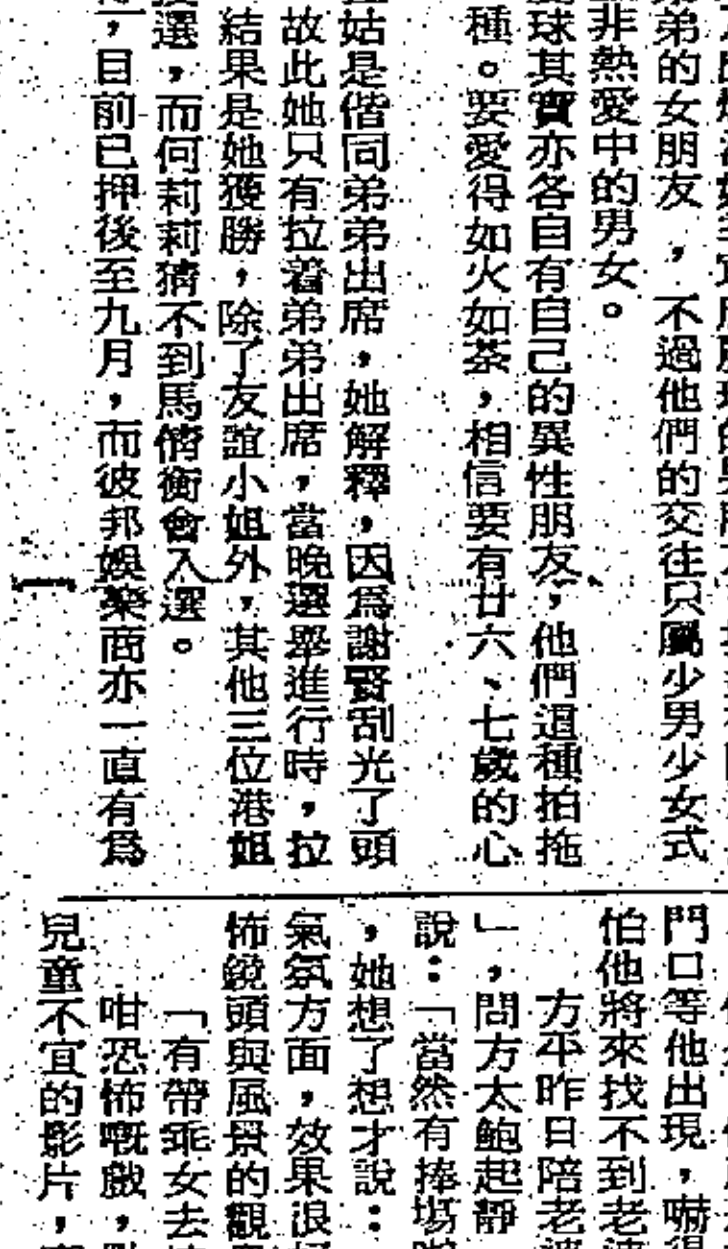 弟的女朋友，不過他們的交往只屬少男少女式
非熱愛中的男女。
球其實亦各自有自己的異性朋友，他們這種拍拖
種。要愛得如火如荼，相信要有廿六、七歲的心
姑是偕同弟弟出席，她解釋，因爲謝賢刮光了頭
故此她只有拉着弟弟出席，當晚選舉進行時，拉
結果是她獲勝，除了友誼小姐外，其他三位港姐
選，而何莉莉猜不到馬儕衡會入選。
，目前已押後至九月，而彼邦娛樂商亦一直有爲
門口等他出現，嚇得
怕他將來找不到老
方平昨日陪老
」，問方太鮑起靜
說：「當然有捧場
，她想了想才說：
氣氛方面，效果浪
怖鏡頭與風景的觀
「有帶乖女去
咁恐怖嘅戲，
兒童不宜的影片，